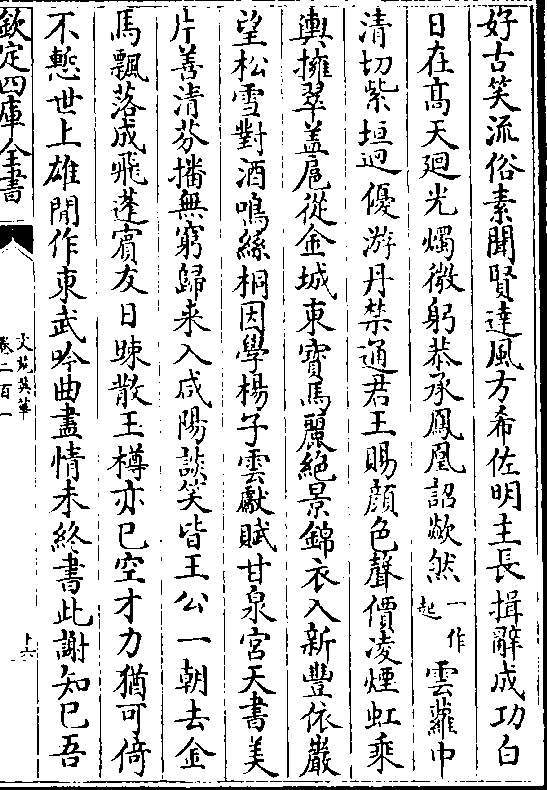 好古笑流俗素聞賢達風方希佐明主長揖辭成功白
日在髙天廻光燭微躬恭承鳳凰詔歘然一作起雲蘿中
清切紫垣迥優游丹禁通君王賜顔色聲價凌煙虹乘
輿擁翠盖扈從金城東寶馬麗絶景錦衣入新豐依巖
望松雪對酒鳴絲桐因學楊子雲獻賦甘泉宫天書美
片善清芬播無窮歸来入咸陽談笑皆王公一朝去金
馬飄落成飛蓬賓友日踈散玉樽亦已空才力猶可倚
不慙世上雄閒作東武吟曲盡情未終書此謝知已吾
欽定四庫全書
文苑英華
卷二百一
十六